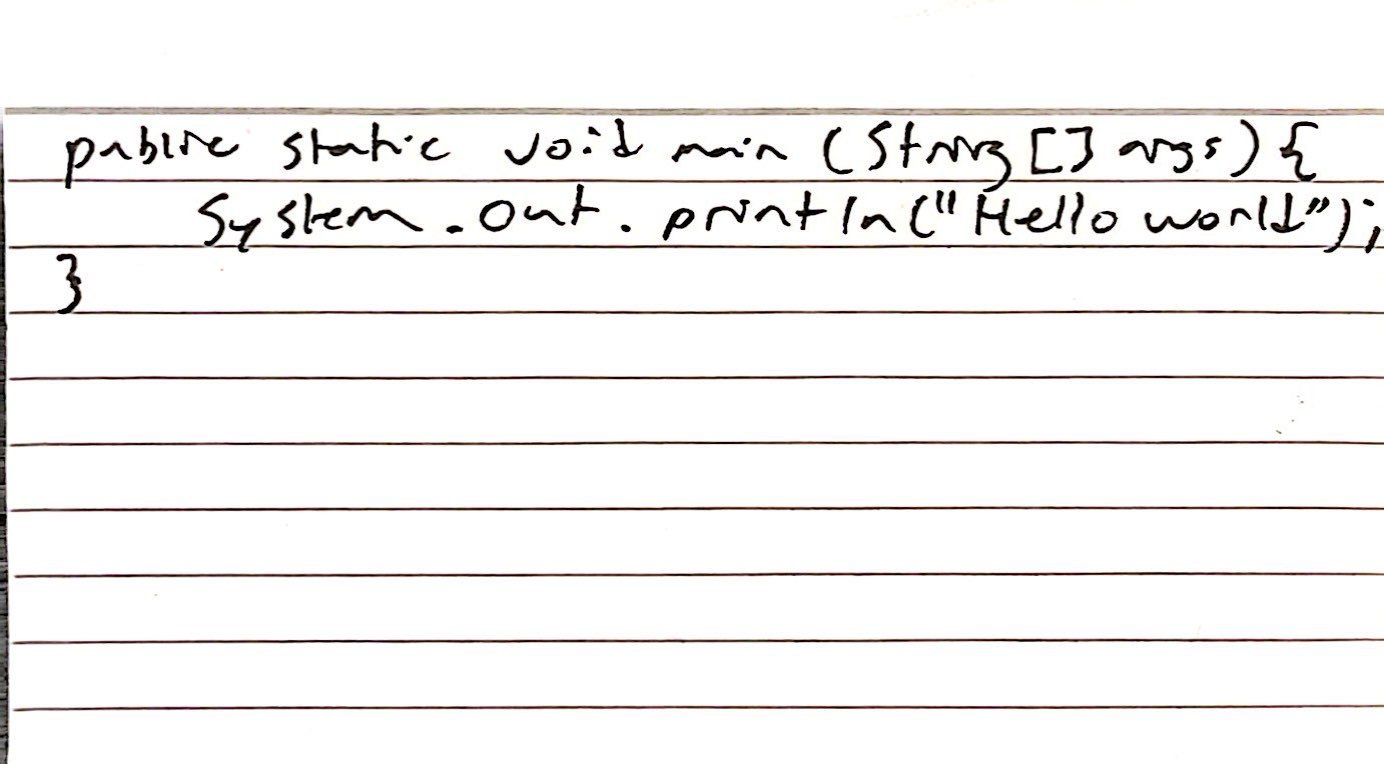 public static void main (String [] args) {
System.out.println("Hello world");
}